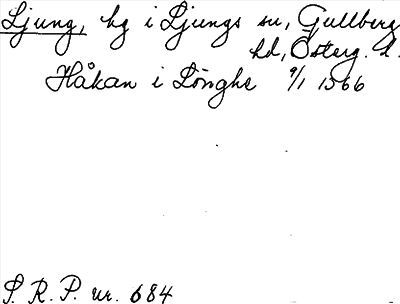 Ljung, hg i Ljungs sn, Gullberg
hd, Österg. l.
Håkan i Lönghe 9/1 1566
S. R. P. nr. 684